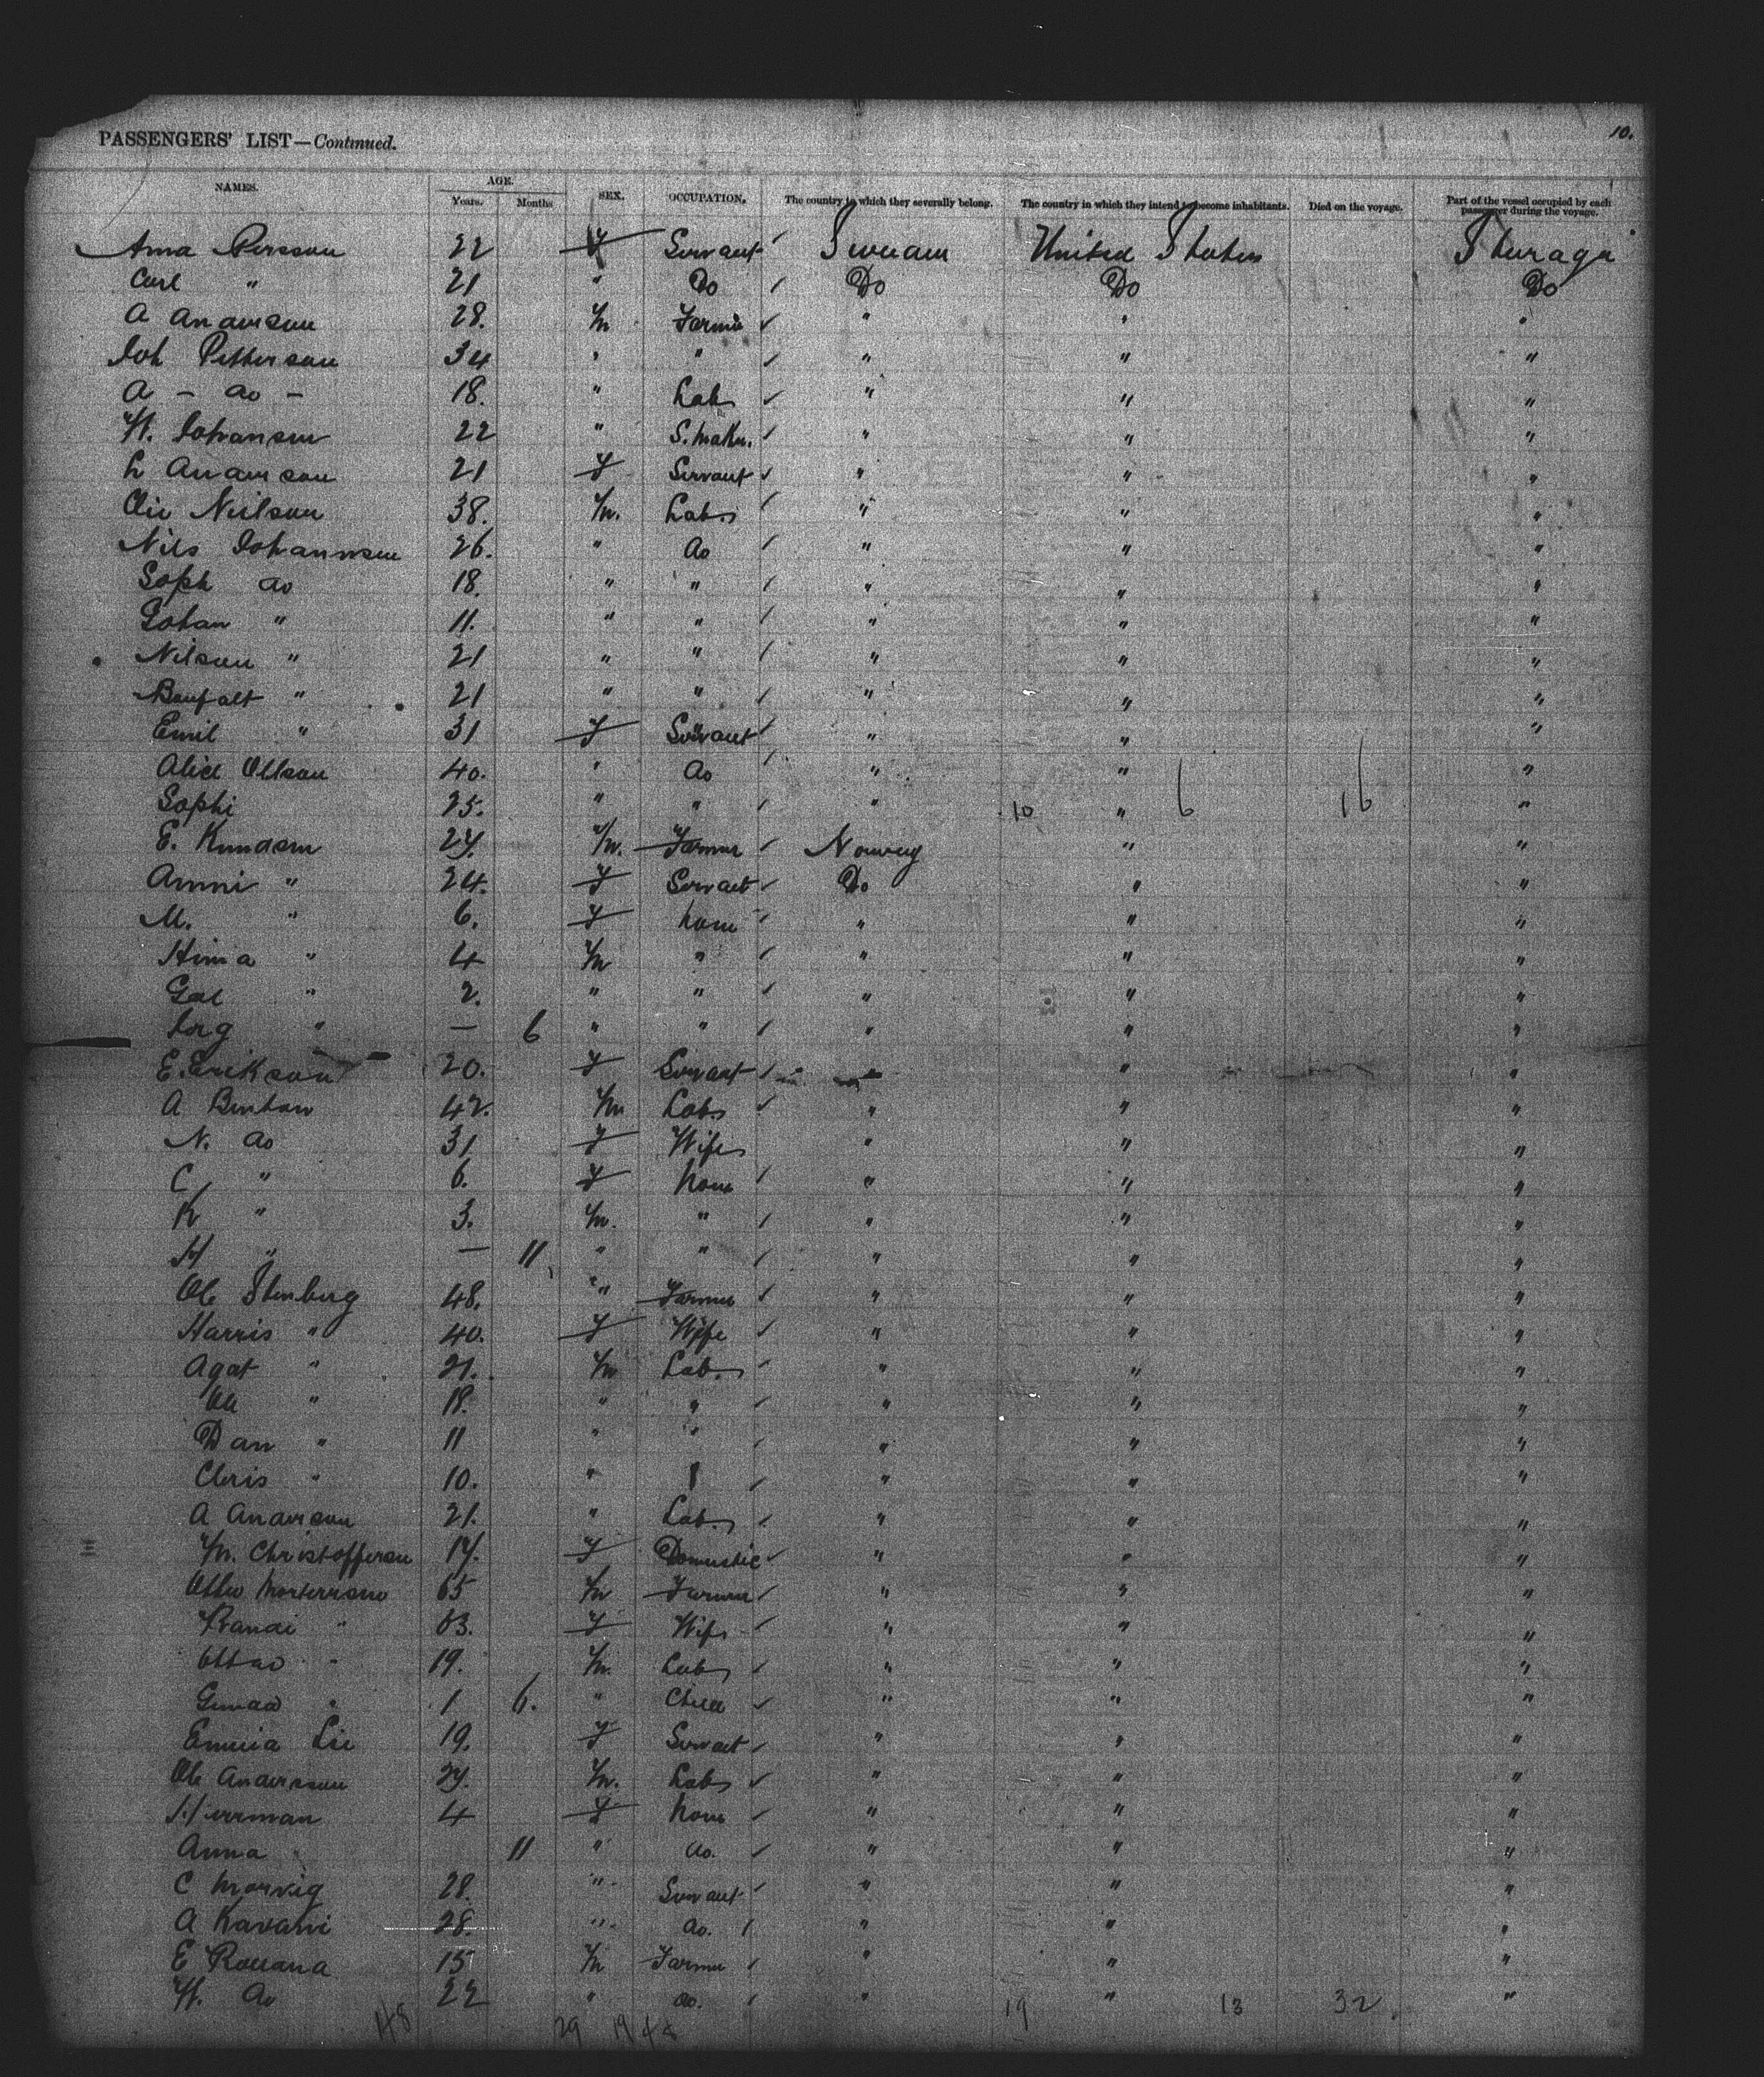 10.
PASSENGERS' LIST—Continued.
NAMES. AGE. Years. Months SEX. OCCUPATION. The country to which they severally belong. The country in which they intend to become inhabitants. Died on the voyage. Part of the vessel occupied by each passenger during the voyage.
Anna Persson 22 F Servant Sweden United States Steerage
Carl " 21 " Do Do Do Do
A Anderson 28. M Farmer " " "
Joh Petterson 34 " " " " "
A – do – 18. " Lab " " "
H. Johansen 22 " S. Maker. " " "
L Anderson 21 F Servant " " "
Nielson 38. M. Lab. " " "
Nils Johannsen 26. " do " " "
Soph do 18. " " " " "
Johan " 11. " " " " "
Nilson " 21 " " " " "
" 21 " " " " "
Emil " 31 F Servant " " "
Olson 40. " do " " "
Sophi 25. " " " 10 " 6 16 "
E. Knudsen 27. M. Farmer Norway " "
Anni " 24. F Servant Do " "
M. " 6. F None " " "
Hima " 4 M " " " "
" 2. " " " " "
" — 6 " " " " "
E. Erikson 20. F Servant " "
A 42. M Lab " " "
N. do 31 F Wife " " "
C " 6. F None " " "
K " 3. M. " " " "
H " — 11 " " " " "
Ole Stenberg 48. " Farmer " " "
Harris " 40. F Wife " " "
Agat " 21. M Lab. " " "
Ole " 18. " " " " "
Dan " 11 " " " " "
Chris " 10. " " " "
A Anderson 21. " Lab. " " "
M. Christoffersen 17. F Domestic " " "
65 M Farmer " " "
Randi " 63. F Wife " " "
" 19. M. Lab " " "
" 1 6. " Child " " "
Emma Lie 19. F Servant " " "
Ole Anderson 27. M. Lab " " "
Herman 4 F None " " "
Anna 11 " do. " " "
C Morvig 28. " Servant " " "
A 28. " do. " " "
E 15 M Farmer " " "
H. do 22 " do. " 19 " 13 32 "
48 29 19 48